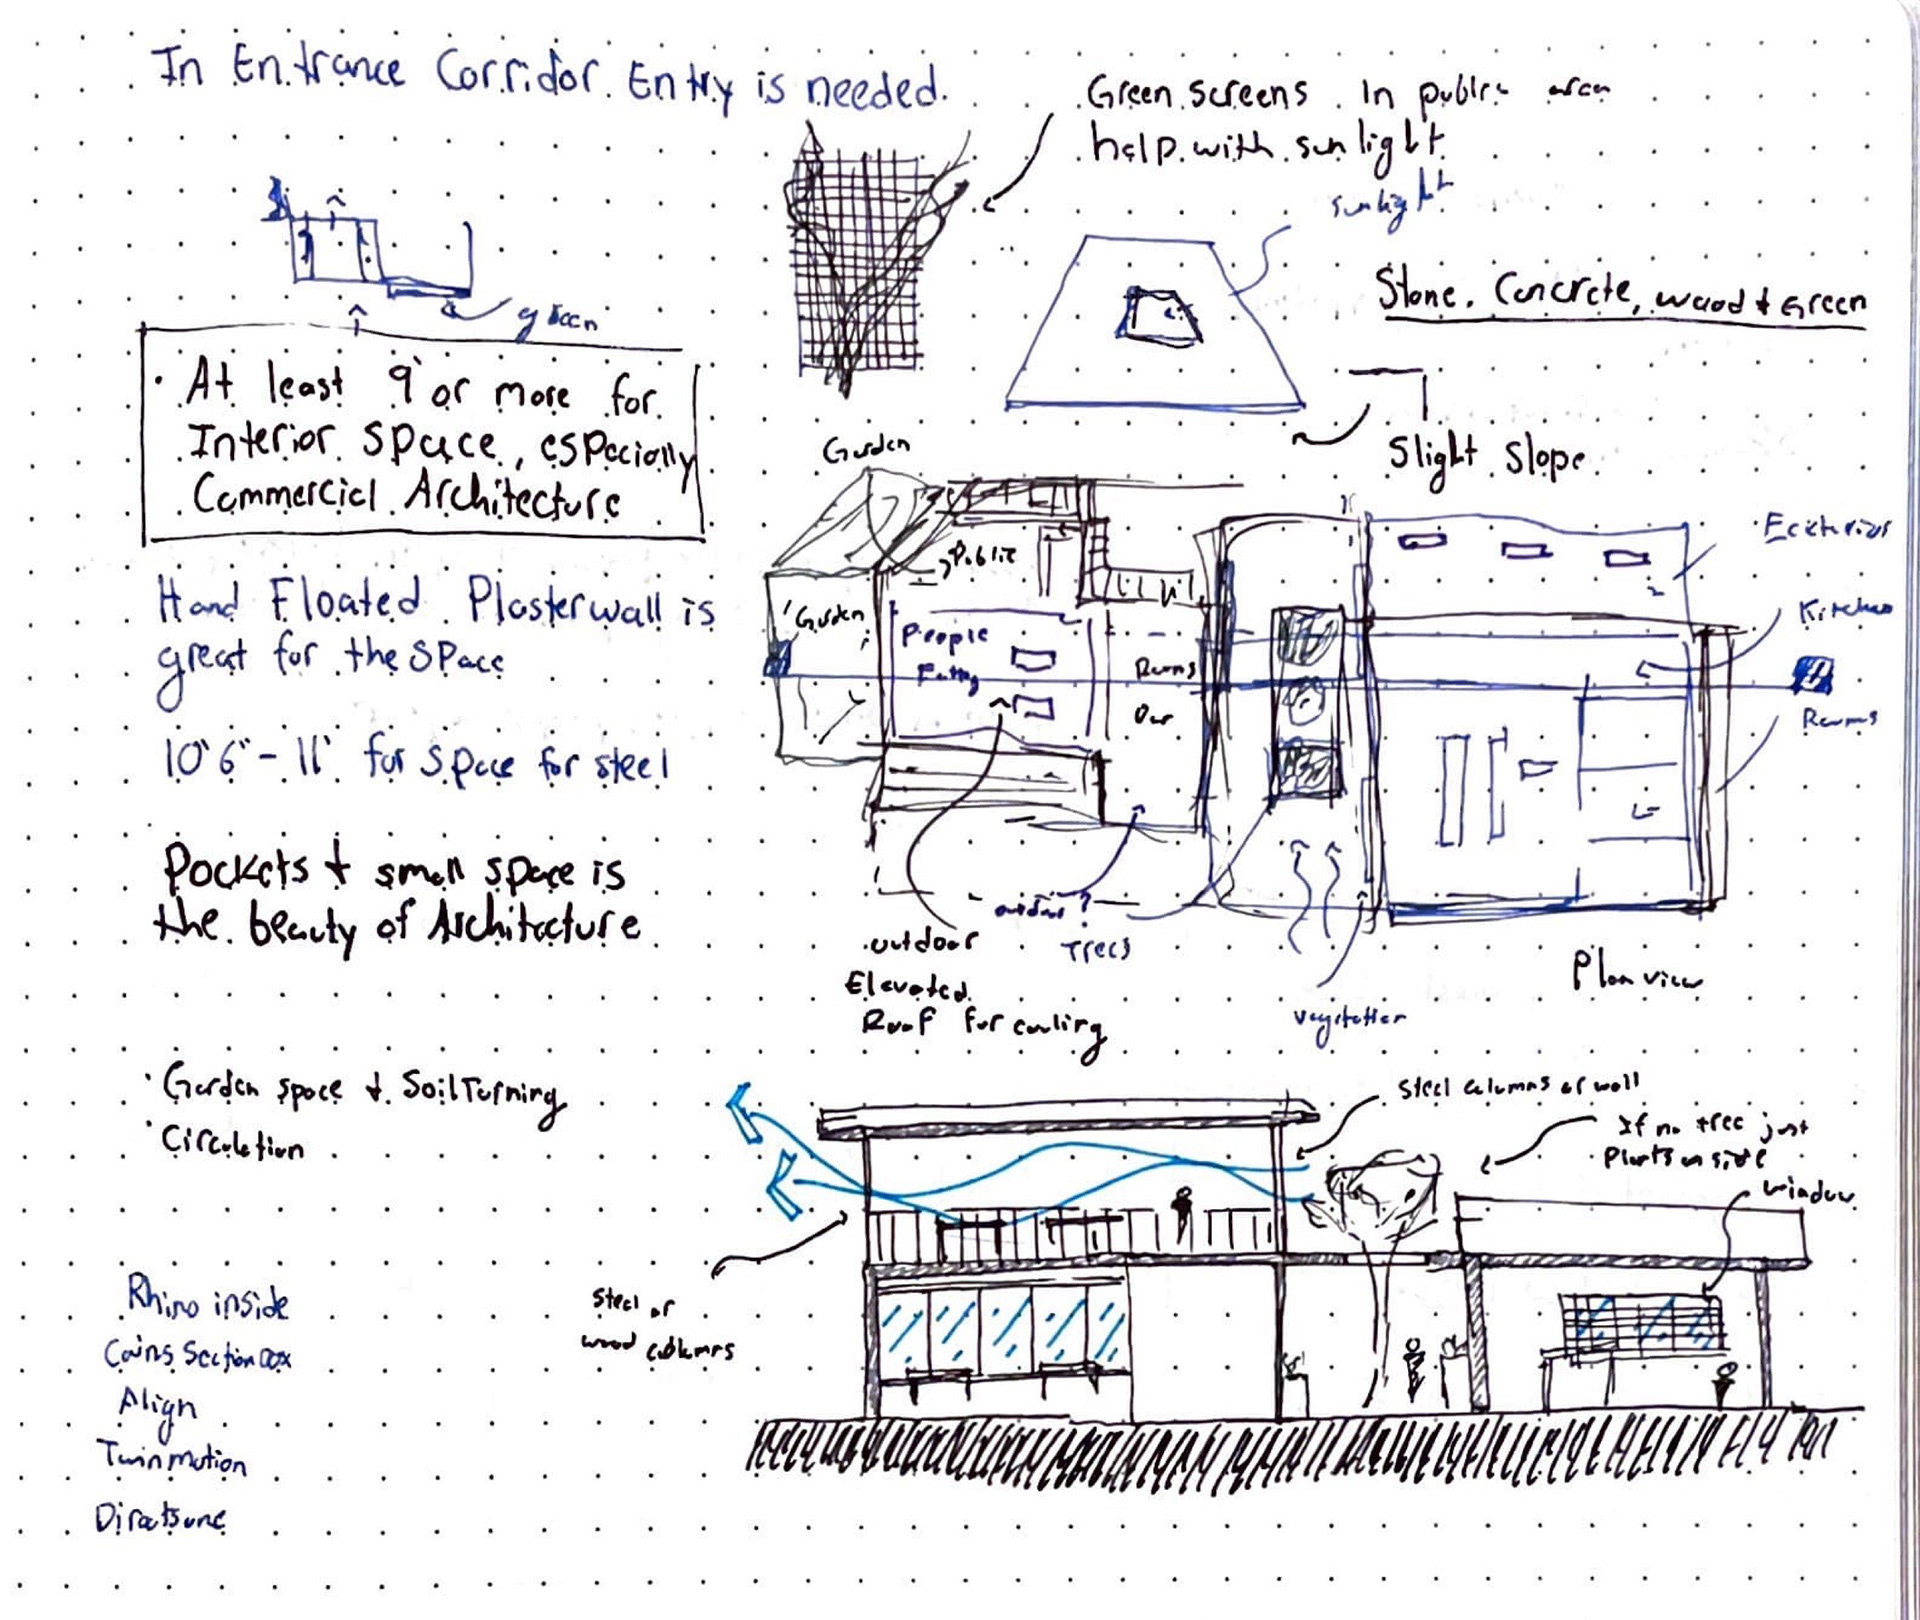 In Entrance Corridor Entry is needed.
Green screens in public area
help with sunlight
sunlight
Stone, Concrete, wood + Green
green
• At least 9' or more for
Interior space, especially
Commercial Architecture
Slight Slope
Garden
Public
Exterior
Hand Floated Plaster wall is
great for the space
Garden
People
Eating
Kitchen
Rooms
Rooms
10'6" - 11' for space for steel
Pockets + small space is
the beauty of Architecture
outdoor
Elevated
Roof for cooling
Trees
vegetation
Plan view
• Garden space + Soil Turning
• Circulation
Steel columns or wall
If no tree just
plants inside
window
Steel or
wood columns
Rhino inside
Section Box
Align
Twinmotion